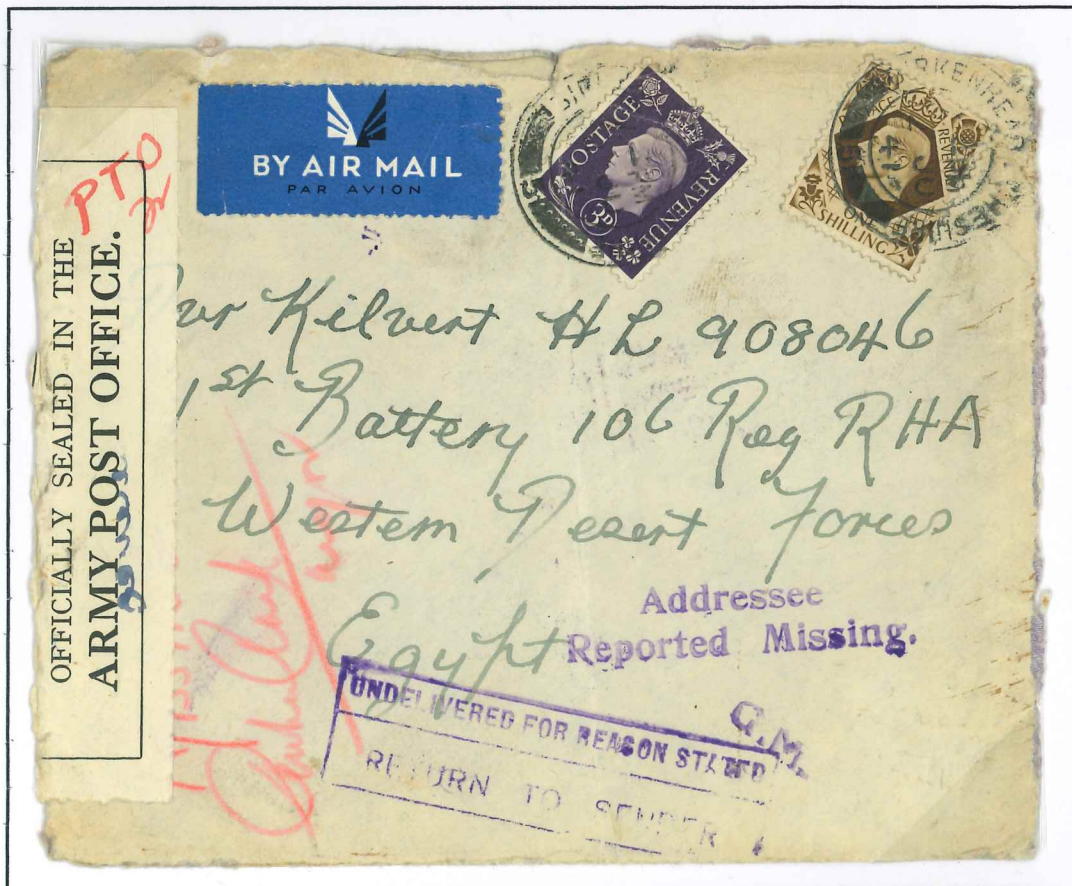 PTO
OFFICIALLY SEALED IN THE
ARMY POST OFFICE.
BY AIR MAIL
PAR AVION
POSTAGE
REVENUE
3D
REVENUE
ONE
SHILLING
Kilvert H L 908046
1st Battery 106 Reg RHA
Western Desert Forces
Egypt
Addressee
Reported Missing.
UNDELIVERED FOR REASON STATED
RETURN TO SENDER